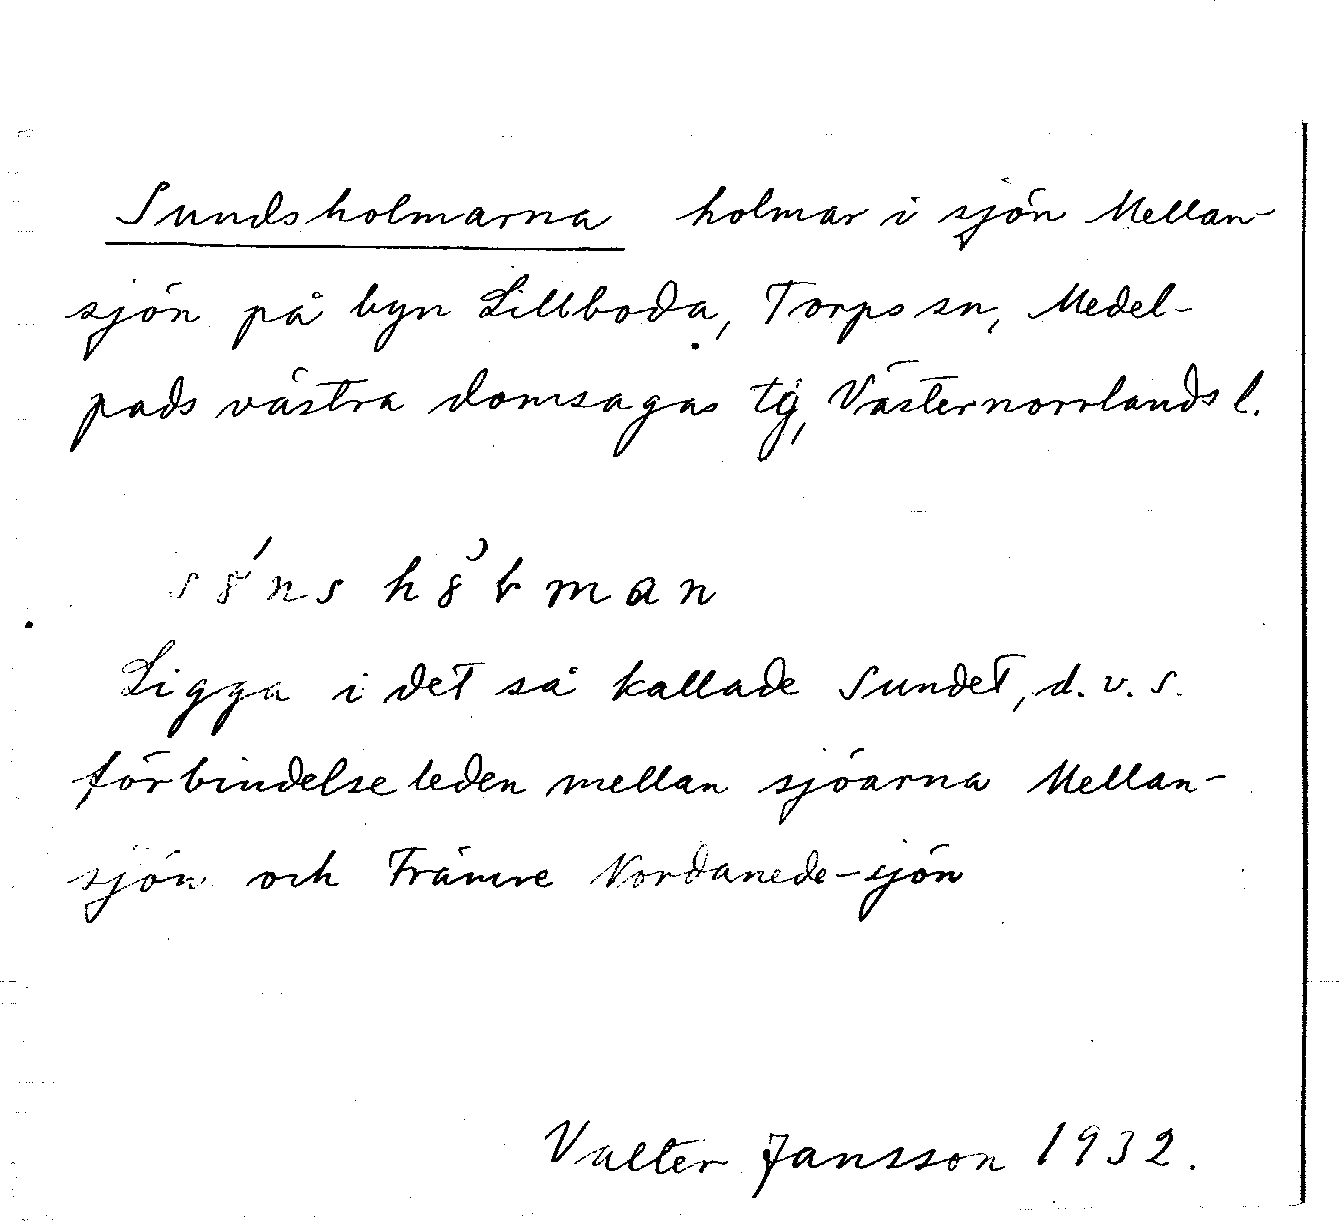 Sundsholmarna holmar i sjön Mellan-
sjön på byn Lillboda, Torps sn, Medel-
pads västra domsagas tg, Västernorrlands l.
Ligga i det så kallade Sundet, d.v.s.
förbindelseleden mellan sjöarna Mellan-
sjön och Främre Nordanede-sjön
Valter Jansson 1932.